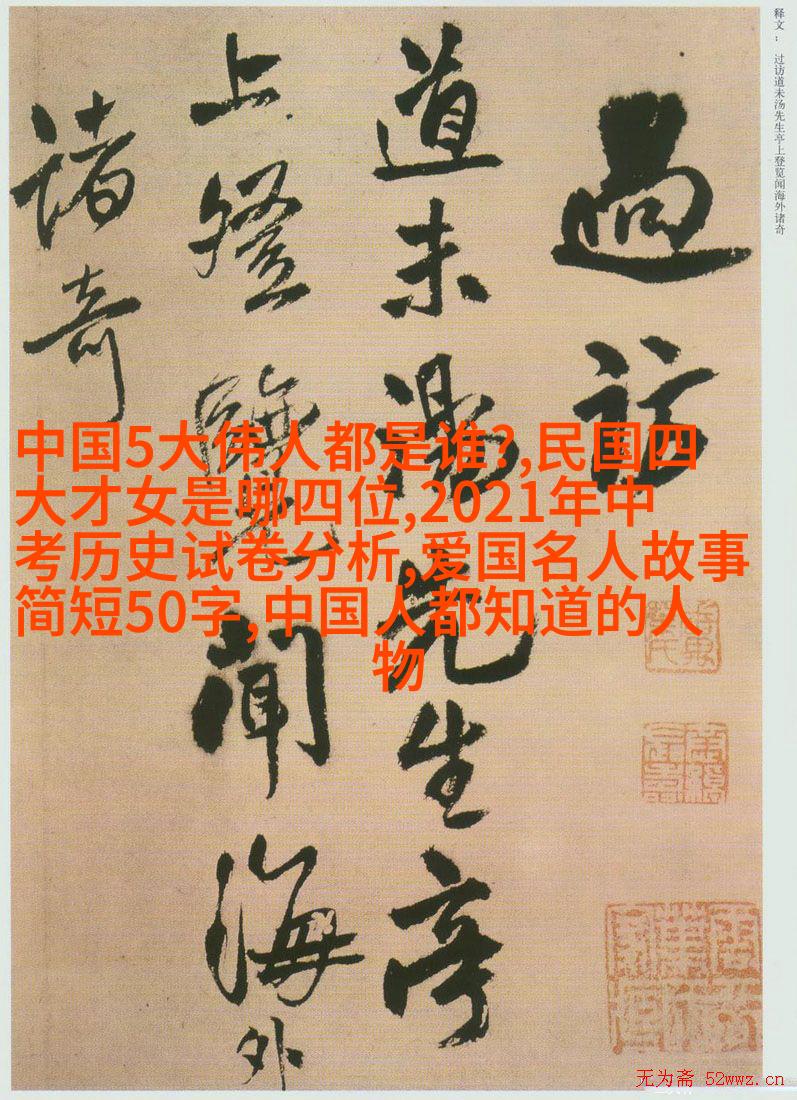 释文： 过访道未汤先生亭上登览闻海外诸奇
過訪
道未湯先生亭
上登覽聞海外
諸奇
中国5大伟人都是谁?,民国四
大才女是哪四位,2021年中
考历史试卷分析,爱国名人故事
简短50字,中国人都知道的人
物
无为斋 52wwz.cn